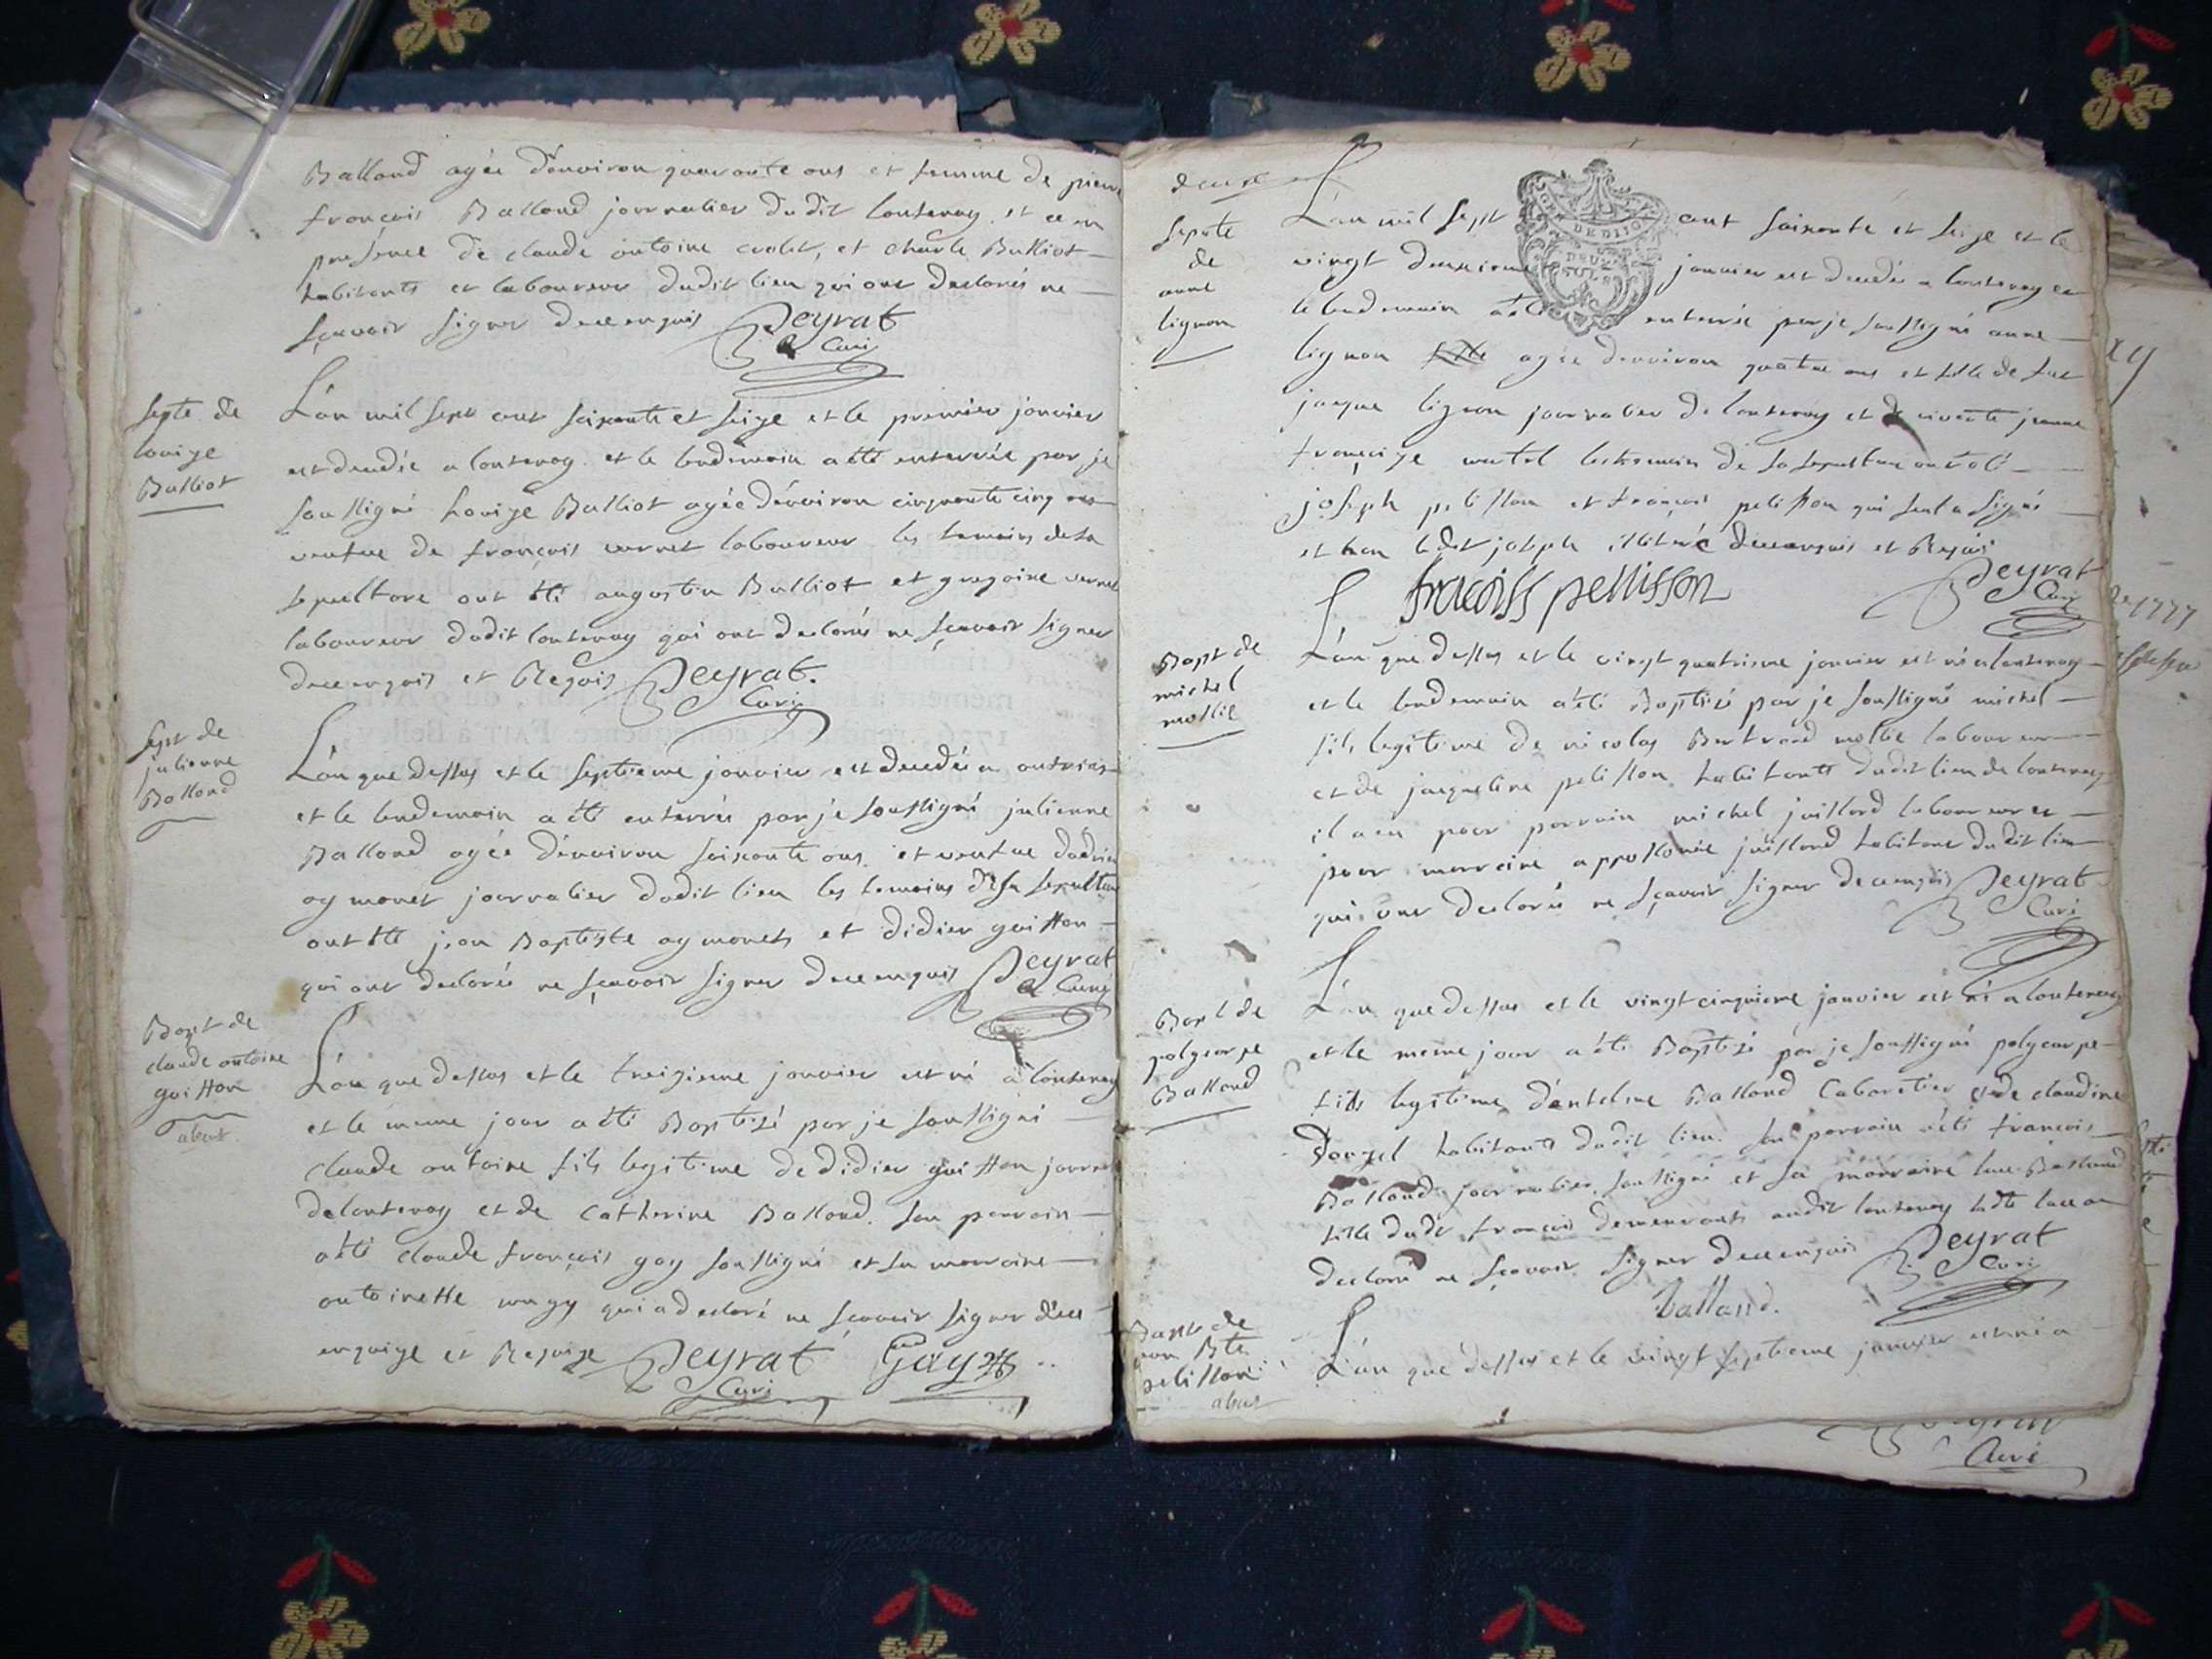 Balland agée d'environ quarante ans et femme de pierre
françois Balland journalier dudit lantenay et ce en
presence de claude antoine et charle Balliot
habitants et laboureur dudit lieu qui ont declarés ne
sçavoir signer de ce enquis Peyrat
Curé
septe de
louize
Balliot
L'an mil sept cent soixante et seize et le premier janvier
est decedée a lantenay et le lendemain a été enterrée par je
soussigné Louize Balliot agée d'environ cinquante cinq ans
veufve de françois vernet laboureur les temoins de sa
sepulture ont été augustin Balliot et gregoire vernet
laboureur dudit lantenay qui ont declarés ne sçavoir signer
de ce enquis et Requis Peyrat.
Curé
sept de
julienne
Balland
L'an que dessus et le septieme janvier est decedée a
et le lendemain a été enterrée par je soussigné julienne
Balland agée d'environ soixante ans et veufve
aymonet journalier dudit lieu les temoins de sa sepulture
ont été jean Baptiste aymonets et didier guitton
qui ont declarés ne sçavoir signer de ce enquis Peyrat
Curé
Bapt de
claude antoine
guitton
abert
L'an que dessus et le treizieme janvier est né a lantenay
et le meme jour a été Baptisé par je soussigné
claude antoine fils legitime de didier guitton journalier
de lantenay et de Catherine Balland. son parrain
a été claude françois gay soussigné et sa marraine
antoinette qui a declaré ne sçavoir signer de ce
enquize et Requize Peyrat Gay
Curé
deux
sepulte
de
anne
lignon
GEN DE DIJON
DEUX
SOLS
L'an mil sept cent soixante et seize et le
vingt deuxieme janvier est decedée a lantenay et
le lendemain a été enterrée par je soussigné anne
lignon agée d'environ quatre ans et fille de feu
jacque lignon journalier de lantenay et de vivante jeanne
françoize les temoins de sa sepulture ont été
joseph pelisson et françois pelisson qui seul a signé
et non ledit joseph illiteré de ce enquis et Requis
fracoiss pellisson Peyrat
Curé
Bapt de
michel
mollie
L'an que dessus et le vingt quatrieme janvier est né a lantenay
et le lendemain a été Baptisé par je soussigné michel
fils legitime de nicolas Bertrand mollie laboureur
et de jacqueline pelisson habitants dudit lieu de lantenay
il a eu pour parrain michel juilland laboureur et
pour marraine appollonie juilland habitans dudit lieu
qui ont declarés ne sçavoir signer de ce enquis Peyrat
Curé
Bapt de
polycarpe
Balland
L'an que dessus et le vingt cinquieme janvier est né a lantenay
et le meme jour a été Baptisé par je soussigné polycarpe
fils legitime d'antelme Balland Cabaretier et de claudine
habitants dudit lieu. son parrain a été françois
Balland journalier soussigné et sa marraine Balland
fille dudit françois demeurants audit lantenay
declaré ne sçavoir signer de ce enquis Peyrat
Curé
Balland.
Bapt de
jean Bte
pelisson
abert
L'an que dessus et le vingt septieme janvier est né a
1777
Curé